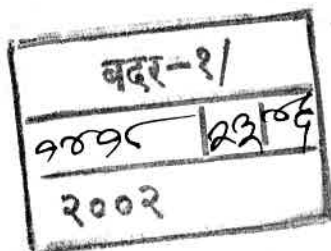 वदर-१/
१४१८ |२३|४६
२००२